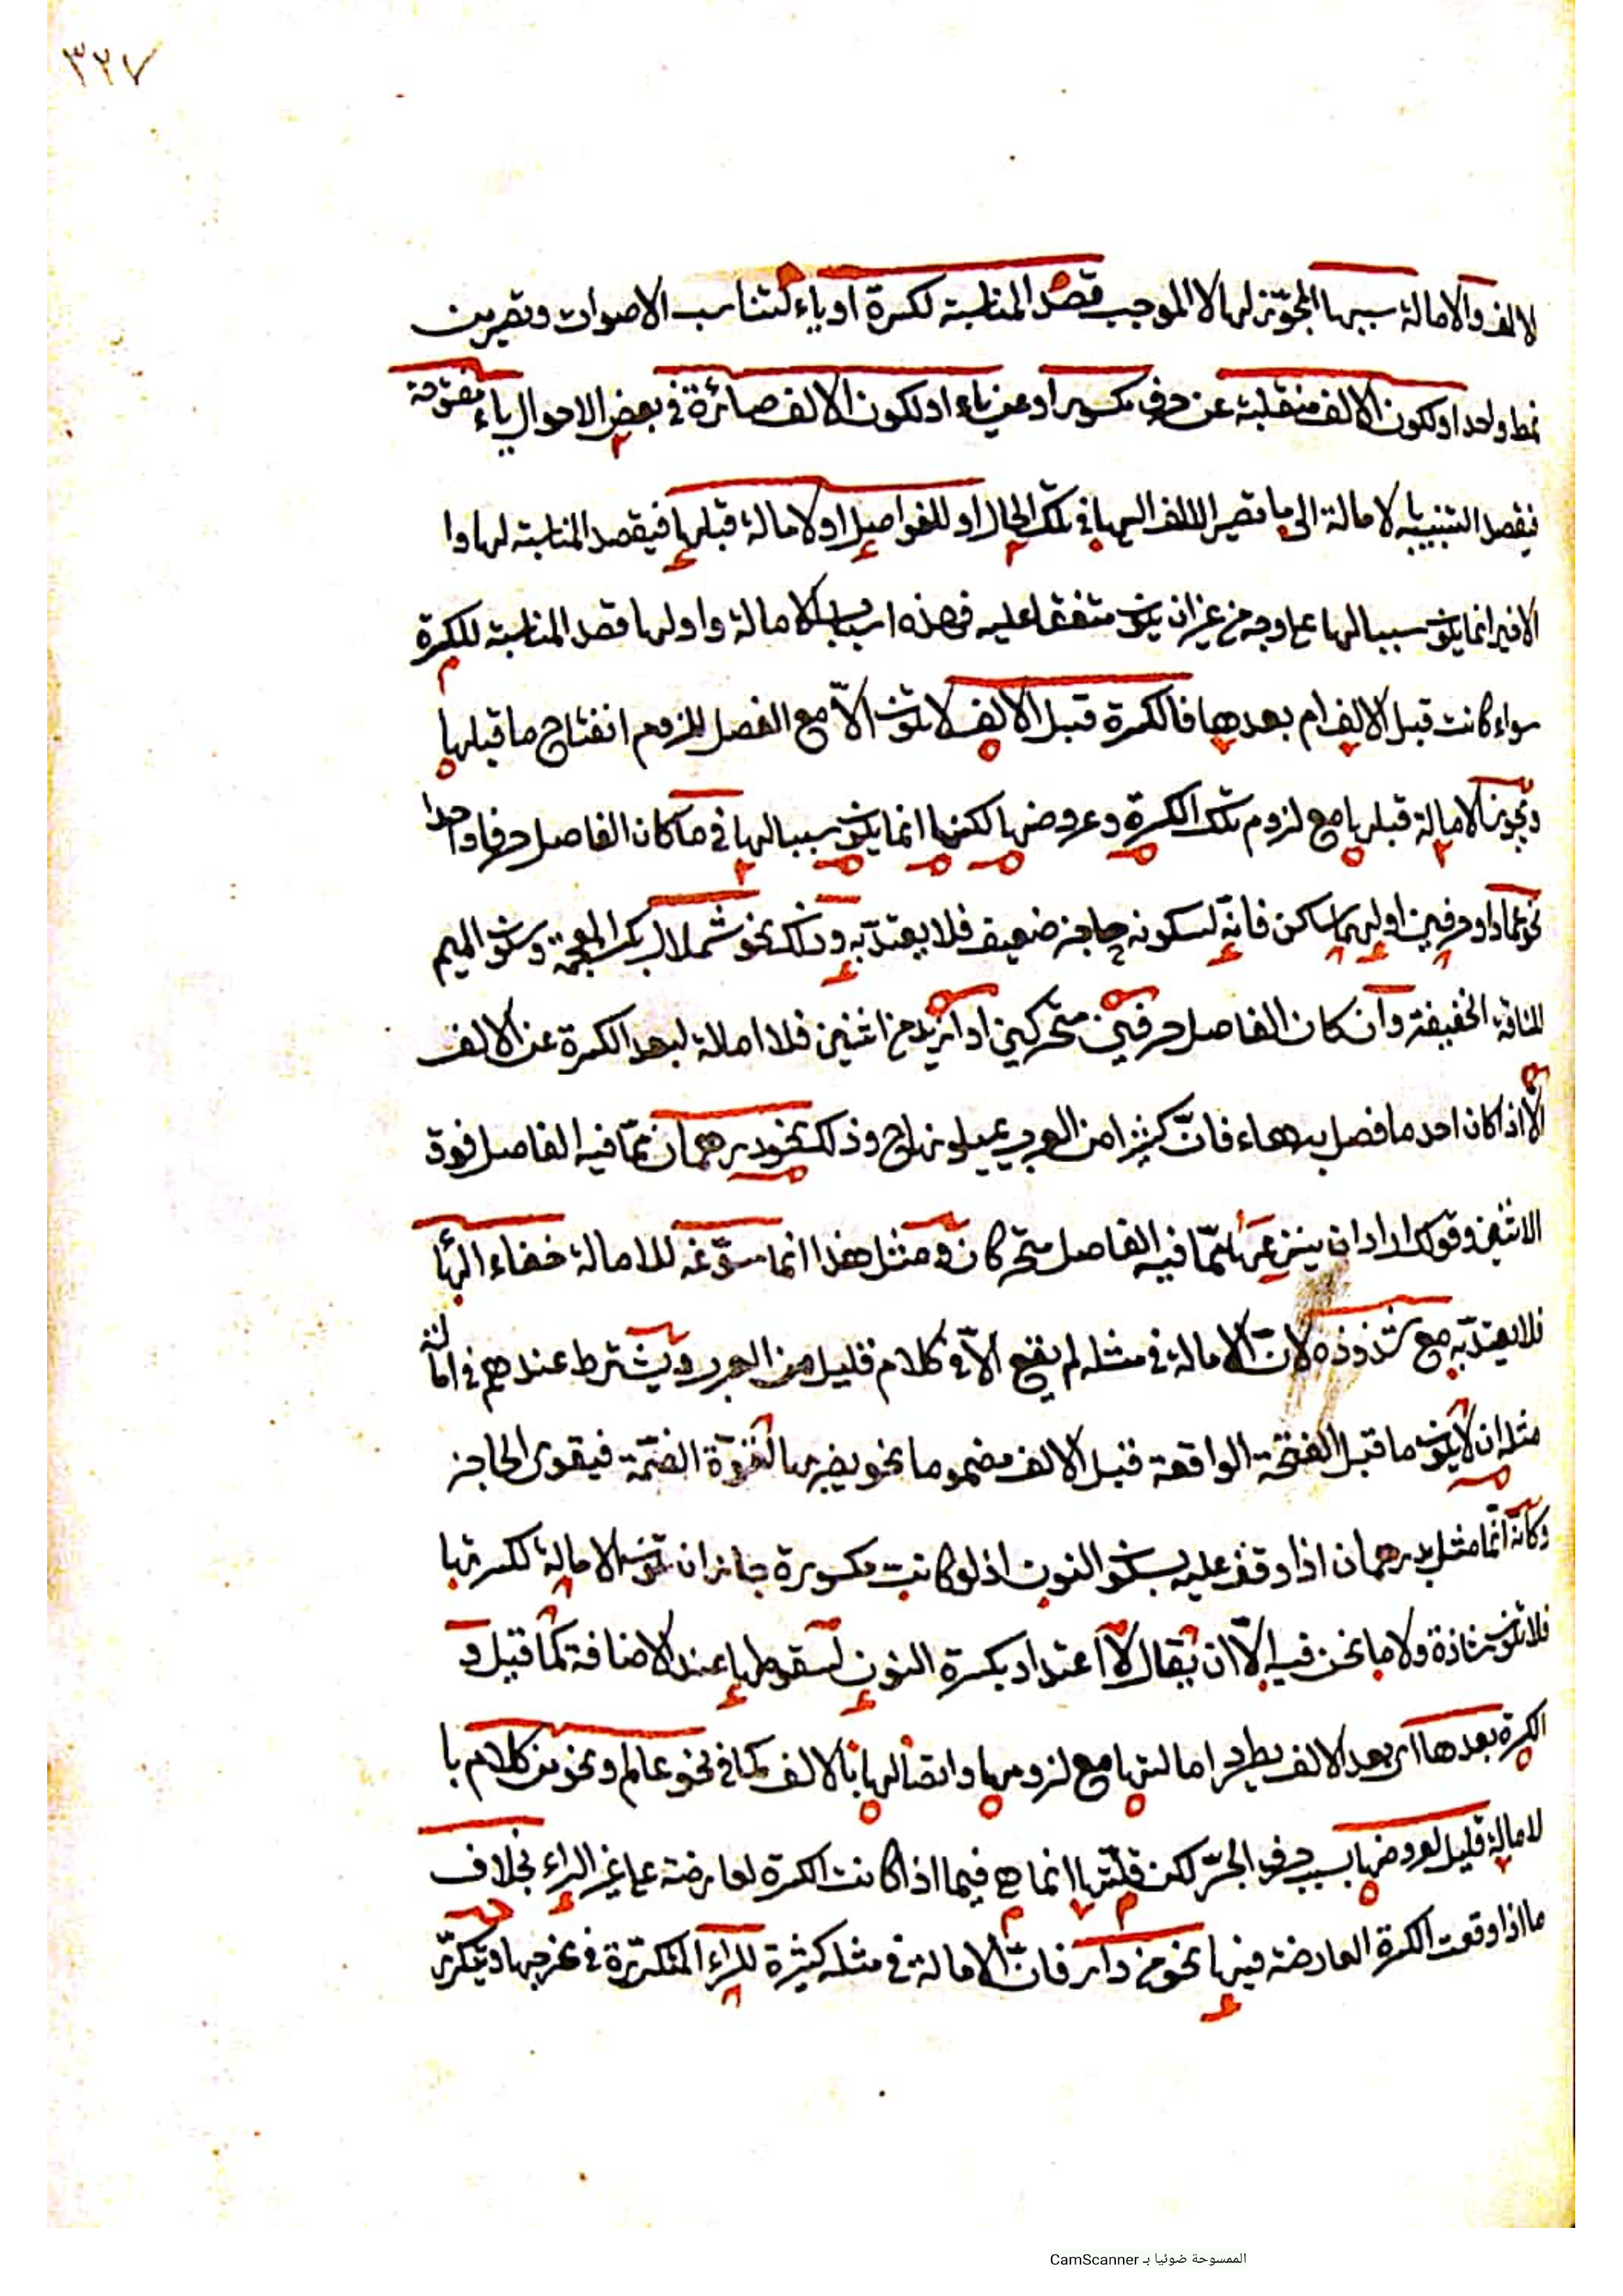 ٣٢٧
لالف والامالة سببها المجوّز لها لا الموجب قصد المناسبة لكسرة او ياء لتناسب الاصوات وتصيرين
نمط واحد او لكون الالف منقلبة عن حرف مكسور او عن ياء او لكون الالف صائرة في بعض الاحوال ياء مفتوحة
فيقصد التنبيه بالامالة الى ما تصير الالف اليها في تلك الحال او للفواصل او لامالة قبلها فيقصد المناسبة لها وا
الاخير انما يكون سببا لها على وجه من غير ان يكون متفقا عليه فهذه اسباب الامالة واولها قصد المناسبة للكسرة
سواء كانت قبل الالف ام بعدها فالكسرة قبل الالف لا تكون الّا مع الفصل للزوم انفتاح ما قبلها
وتجوز الامالة قبلها مع لزوم تلك الكسرة وعروضها لكنها انما يكون سببا لها في ما كان الفاصل حرفا واحدا
نحو عماد او حرفين اولهما ساكن فانّه لسكونه حاجز ضعيف فلا يعتدّ به وذلك نحو شملال بكسر المعجمة وسكون الميم
للناقة الخفيفة وان كان الفاصل حرفين متحركين او ازيد من اثنين فلا امالة لبعد الكسرة عن الالف
الّا اذ كان احد ما فصل به هاء فانّ كثيرا من العرب يميلونها ح وذلك نحو درهمان ممّا فيه الفاصل فوق
الاثنين وقولك اراد ان ينزعها ممّا فيه الفاصل متحركان ومثل هذا انما سوّغه للامالة خفاء الهاء
فلا يعتدّ به مع شذوذه لانّ الامالة في مثله لم يقع الّا في كلام قليل من العرب ويشترط عندهم في امالة
مثله ان لا يكون ما قبل الفتحة الواقعة قبل الالف مضموما نحو يضربها لقوّة الضمّة فيقوى الحاجز
وكانّه انّما مثل بدرهمان اذا وقف عليه بسكون النون اذ لو كانت مكسورة جاز ان تكون الامالة لكسرتها
فلا تكون شاذة ولا ما نحن فيه الّا ان يقال لا اعتداد بكسرة النون لسقوطها عند الاضافة كما قيل و
الكسرة بعدها اى بعد الالف يطرد امالتها مع لزومها واتصالها بالالف كما في نحو عالم ونحو من كلام با
لامالة قليل لعروضها بسبب حرف الجرّ لكن قلّتها انما هي فيما اذا كانت الكسرة لعارضة على غير الراء بخلاف
ما اذا وقعت الكسرة العارضة فيها نحو من دار فانّ الامالة في مثله كثيرة للراء المتكرّرة في مخرجها ويتكرّر
الممسوحة ضوئيا بـ CamScanner